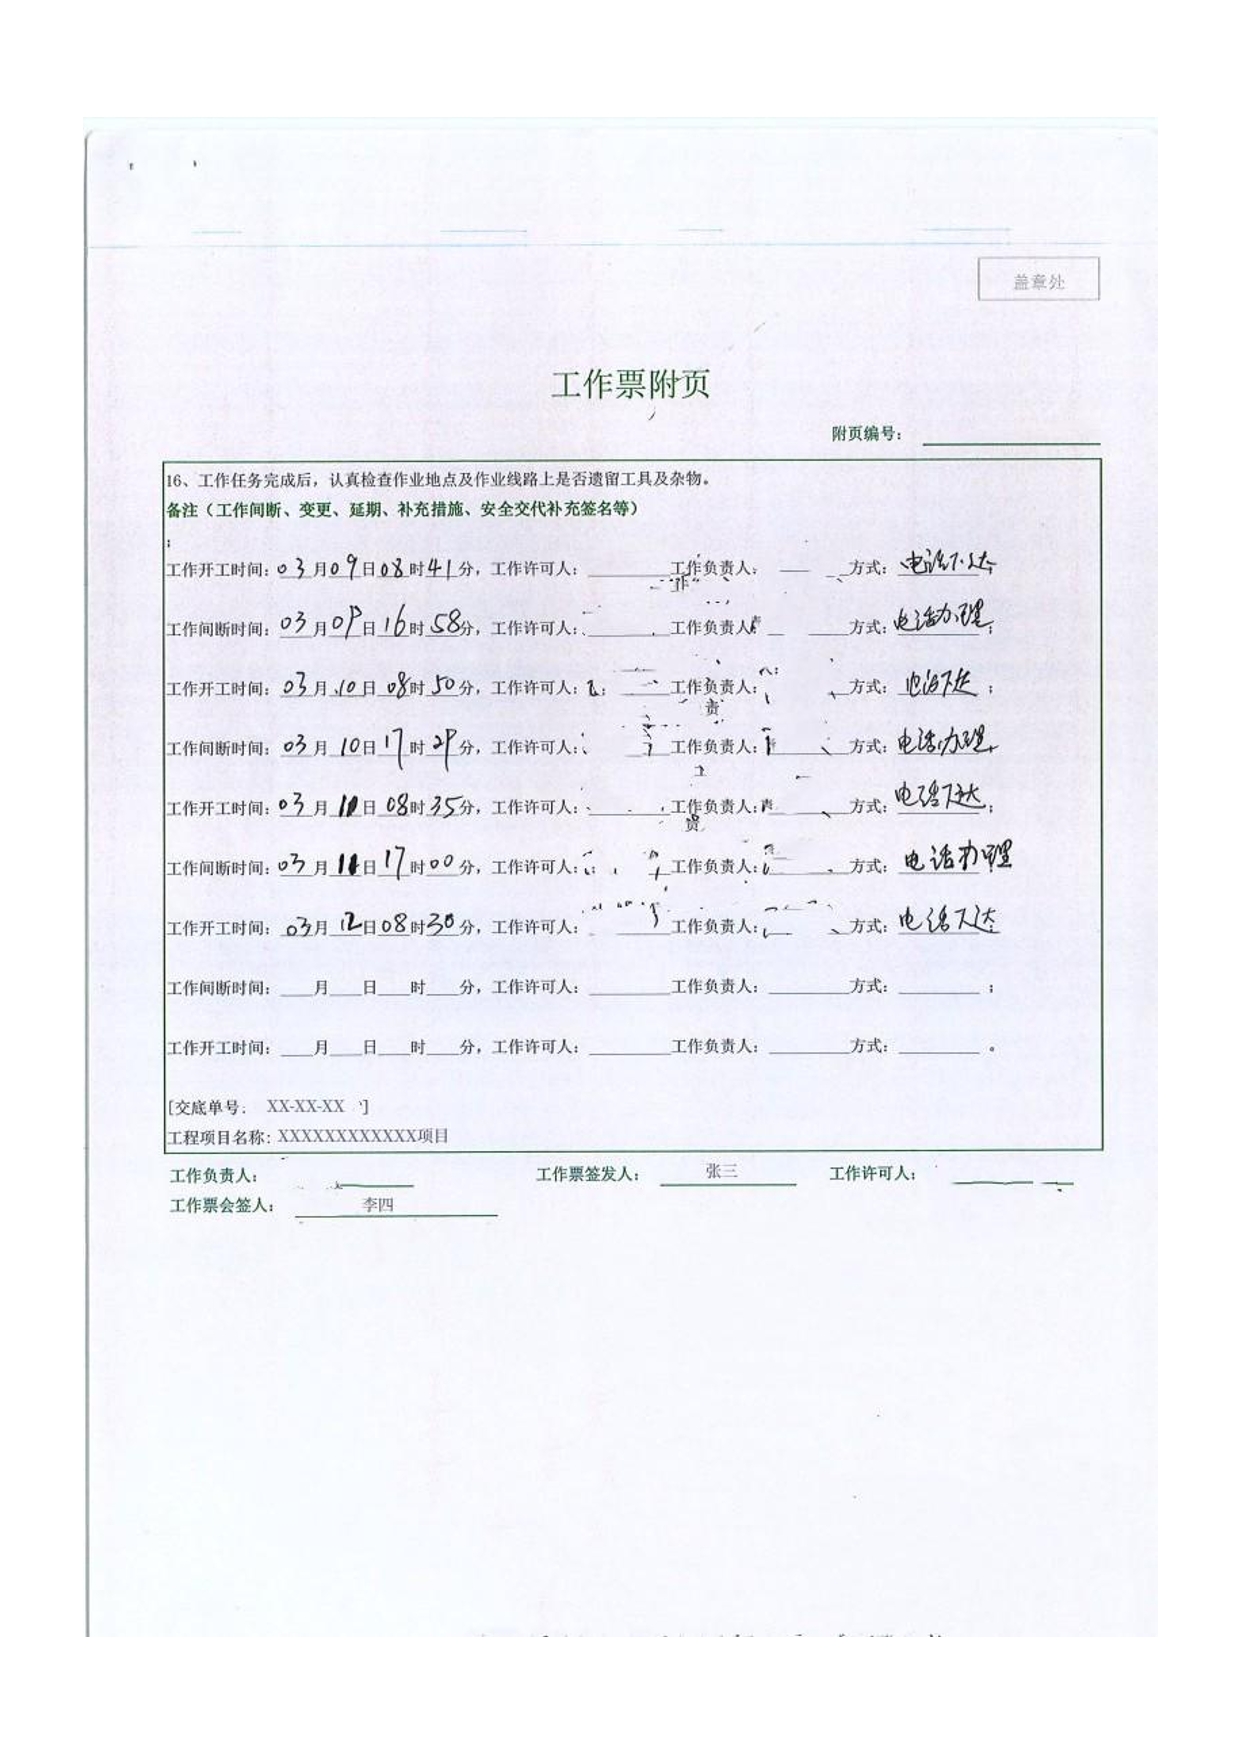 盖章处
工作票附页
附页编号：
16、工作任务完成后，认真检查作业地点及作业线路上是否遗留工具及杂物。
备注（工作间断、变更、延期、补充措施、安全交代补充签名等）
：
工作开工时间：03月09日08时41分，工作许可人： 工作负责人： 方式：电话下达；
工作间断时间：03月09日16时58分，工作许可人： 工作负责人 方式：电话办理；
工作开工时间：03月10日08时50分，工作许可人： 工作负责人： 方式：电话下达；
工作间断时间：03月10日17时29分，工作许可人： 工作负责人： 方式：电话办理
工作开工时间：03月11日08时35分，工作许可人： 工作负责人： 方式：电话下达；
工作间断时间：03月11日17时00分，工作许可人： 工作负责人： 方式：电话办理
工作开工时间：03月12日08时30分，工作许可人： 工作负责人： 方式：电话下达
工作间断时间： 月 日 时 分，工作许可人： 工作负责人： 方式： ；
工作开工时间： 月 日 时 分，工作许可人： 工作负责人： 方式： 。
[交底单号： XX-XX-XX ]
工程项目名称：XXXXXXXXXXXX项目
工作负责人： 工作票签发人： 张三 工作许可人：
工作票会签人： 李四